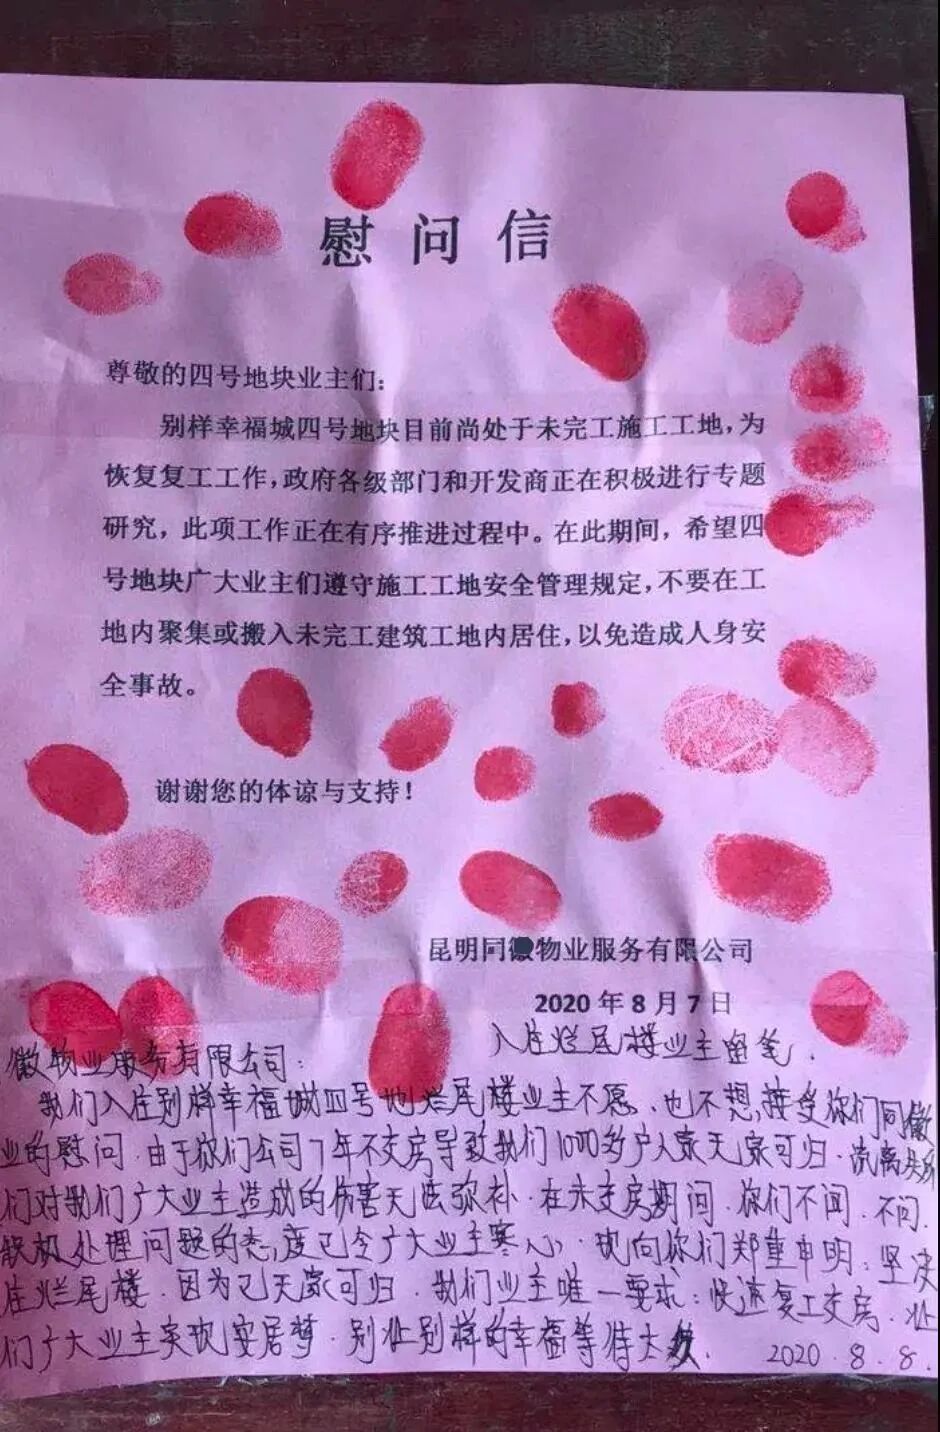 慰问信
尊敬的四号地块业主们：
别样幸福城四号地块目前尚处于未完工施工工地，为
恢复复工工作，政府各级部门和开发商正在积极进行专题
研究，此项工作正在有序推进过程中。在此期间，希望四
号地块广大业主们遵守施工工地安全管理规定，不要在工
地内聚集或搬入未完工建筑工地内居住，以免造成人身安
全事故。
谢谢您的体谅与支持！
昆明同徽物业服务有限公司
2020年8月7日
入住烂尾楼业主留笔.
徽物业服务有限公司：
我们入住别样幸福城四号地烂尾楼业主不愿.也不想接受你们同徽
业的慰问.由于你们公司7年不交房导致我们1000多户人家无家可归.流离失所
们对我们广大业主造成的伤害无法弥补.在未交房期间.你们不闻.不问.
处理问题的态度已令广大业主寒心.现向你们郑重申明：坚决
住烂尾楼.因为已无家可归.我们业主唯一要求：快速复工交房.让
们广大业主实现安居梦.别让别样的幸福等待太久.
2020.8.8.